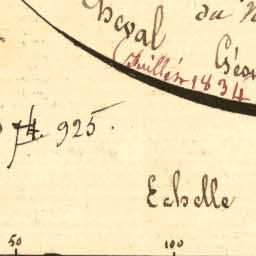 Cheval
du
(Juillet 1834
925.
Echelle
50 100